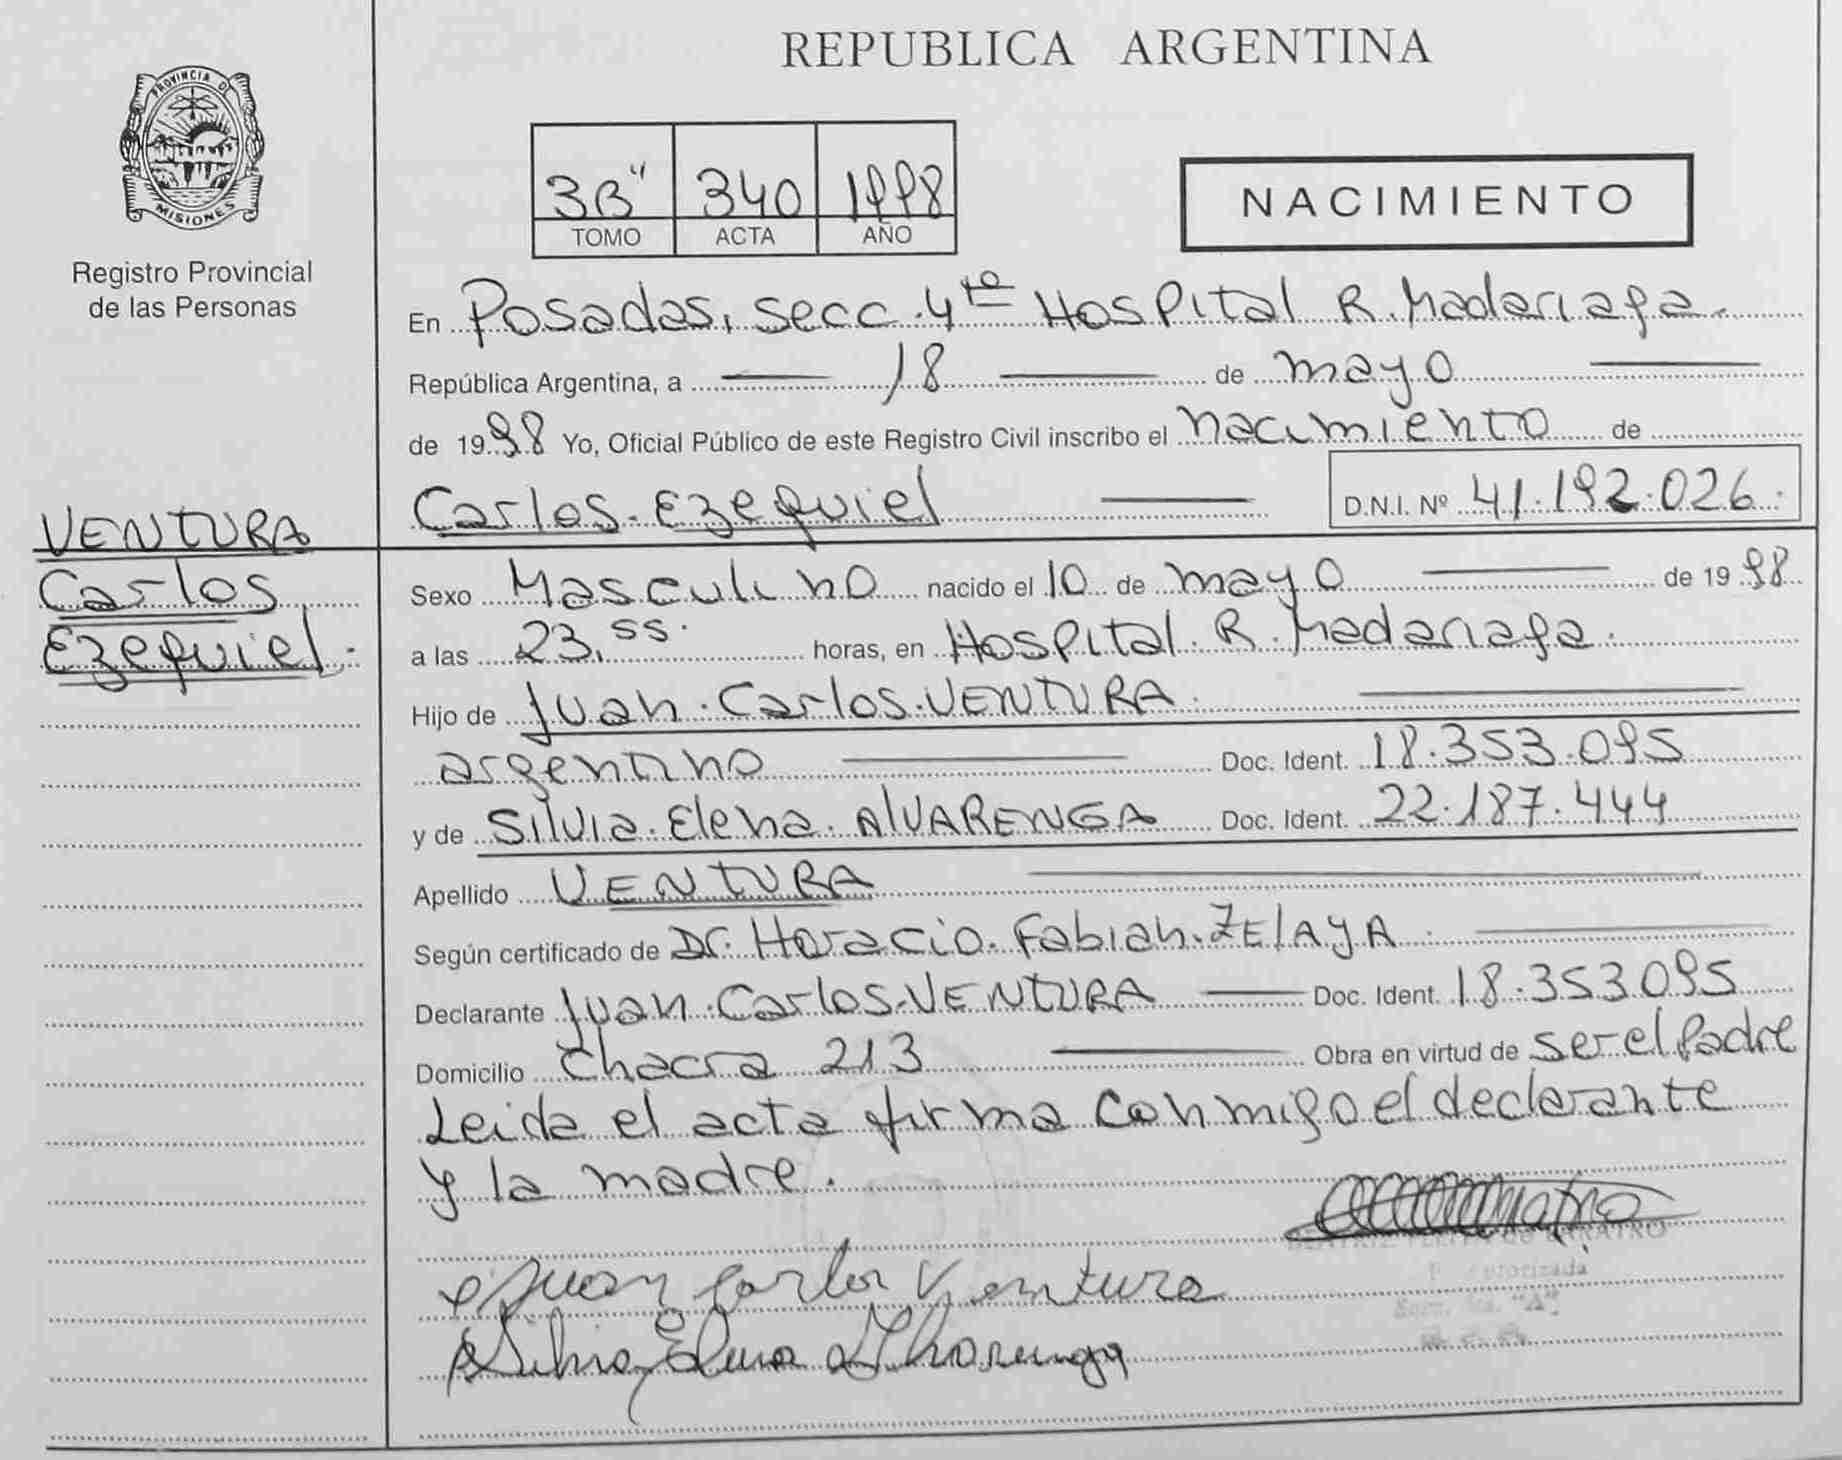 REPUBLICA ARGENTINA
PROVINCIA DE
MISIONES
Registro Provincial
de las Personas
3B" 340 1998
TOMO ACTA AÑO
NACIMIENTO
En Posadas, secc. 4ta Hospital R. Madariaga.
República Argentina, a 18 de mayo
de 1998 Yo, Oficial Público de este Registro Civil inscribo el nacimiento de
Carlos Ezequiel D.N.I. Nº 41.192.026.
VENTURA
Carlos
Ezequiel.
Sexo Masculino nacido el 10 de mayo de 1998
a las 23,55. horas, en Hospital R. Madariaga.
Hijo de Juan Carlos VENTURA
argentino Doc. Ident. 18.353.095
y de Silvia Elena AlVARENGA Doc. Ident. 22.187.444
Apellido VENTURA
Según certificado de Dr. Horacio Fabian ZElAyA
Declarante Juan Carlos VENTURA Doc. Ident. 18.353095
Domicilio Chacra 213 Obra en virtud de ser el Padre
Leida el acta firma conmigo el declarante
y la madre.
Juan Carlos Ventura
Silvia Elena Alvarenga